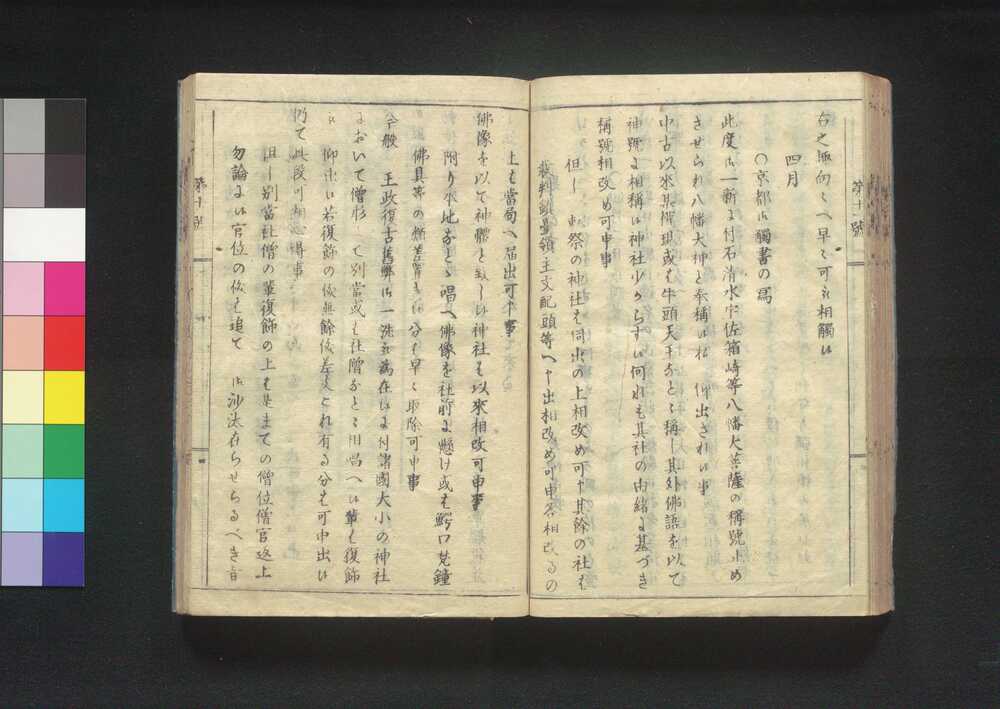 右之趣向々へ早々可相觸候
四月
〇京都御觸書の寫
此度御一新に付石清水宇佐箱崎等八幡大菩薩の稱號止め
させられ八幡大神と奉稱候樣 仰出され候事
中古以來某權現或は牛頭天王などと稱し其外佛語を以て
神號に相稱候神社少からず候何れも其社の由緒に基づき
稱號相改め可申事
但し 勅祭の神社は伺出の上相改め可申其餘の社は
裁判鎮臺領主支配頭等へ申出相改め可申答相改るの
上は當局へ届出可申事
佛像を以て神體と致し候神社は以來相改可申事
附り本地などと唱へ佛像を社前に懸け或は鰐口梵鐘
佛具等の類差置候分は早々取除可申事
今般 王政復古舊弊御一洗被為在候に付諸國大小の神社
において僧形にて別當或は社僧などと相唱へ候輩は復飾
被 仰出候若復飾の儀無餘儀差支これ有る分は可申出候
仍て此段可相心得事
但し別當社僧の輩復飾の上は是までの僧位僧官返上
勿論に候官位の儀は追て 御沙汰在らせらるべき旨
第十一號
第十一號